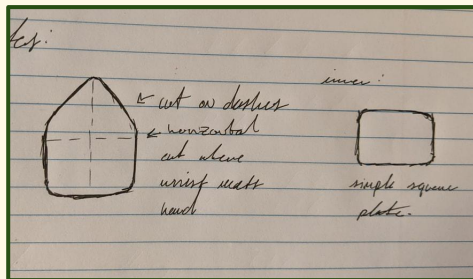 inner:
cut on dashes
horizontal
cut above
wrist meets
hand
simple square
plate.